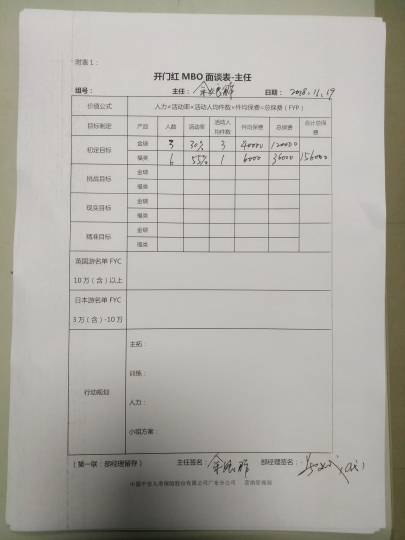 附表1：
开门红 MBO 面谈表-主任
组号： 主任： 日期： 2018.11.19
价值公式 人力×活动率×活动人均件数×件均保费=总保费（FYP）
目标制定 产品 人数 活动率 活动人均件数 件均保费 总保费 合计总保费
初定目标 金瑞 3 30% 3 40000 120000 156000
福类 6 55% 1 6000 36000
挑战目标 金瑞
福类
现实目标 金瑞
福类
精准目标 金瑞
福类
英国游名单 FYC
10万（含）以上
日本游名单 FYC
3万（含）-10万
行动规划
主拓：
训练：
人力：
小组方案：
（第一联：部经理留存） 主任签名： 部经理签名：
中国平安人寿保险股份有限公司广东分公司